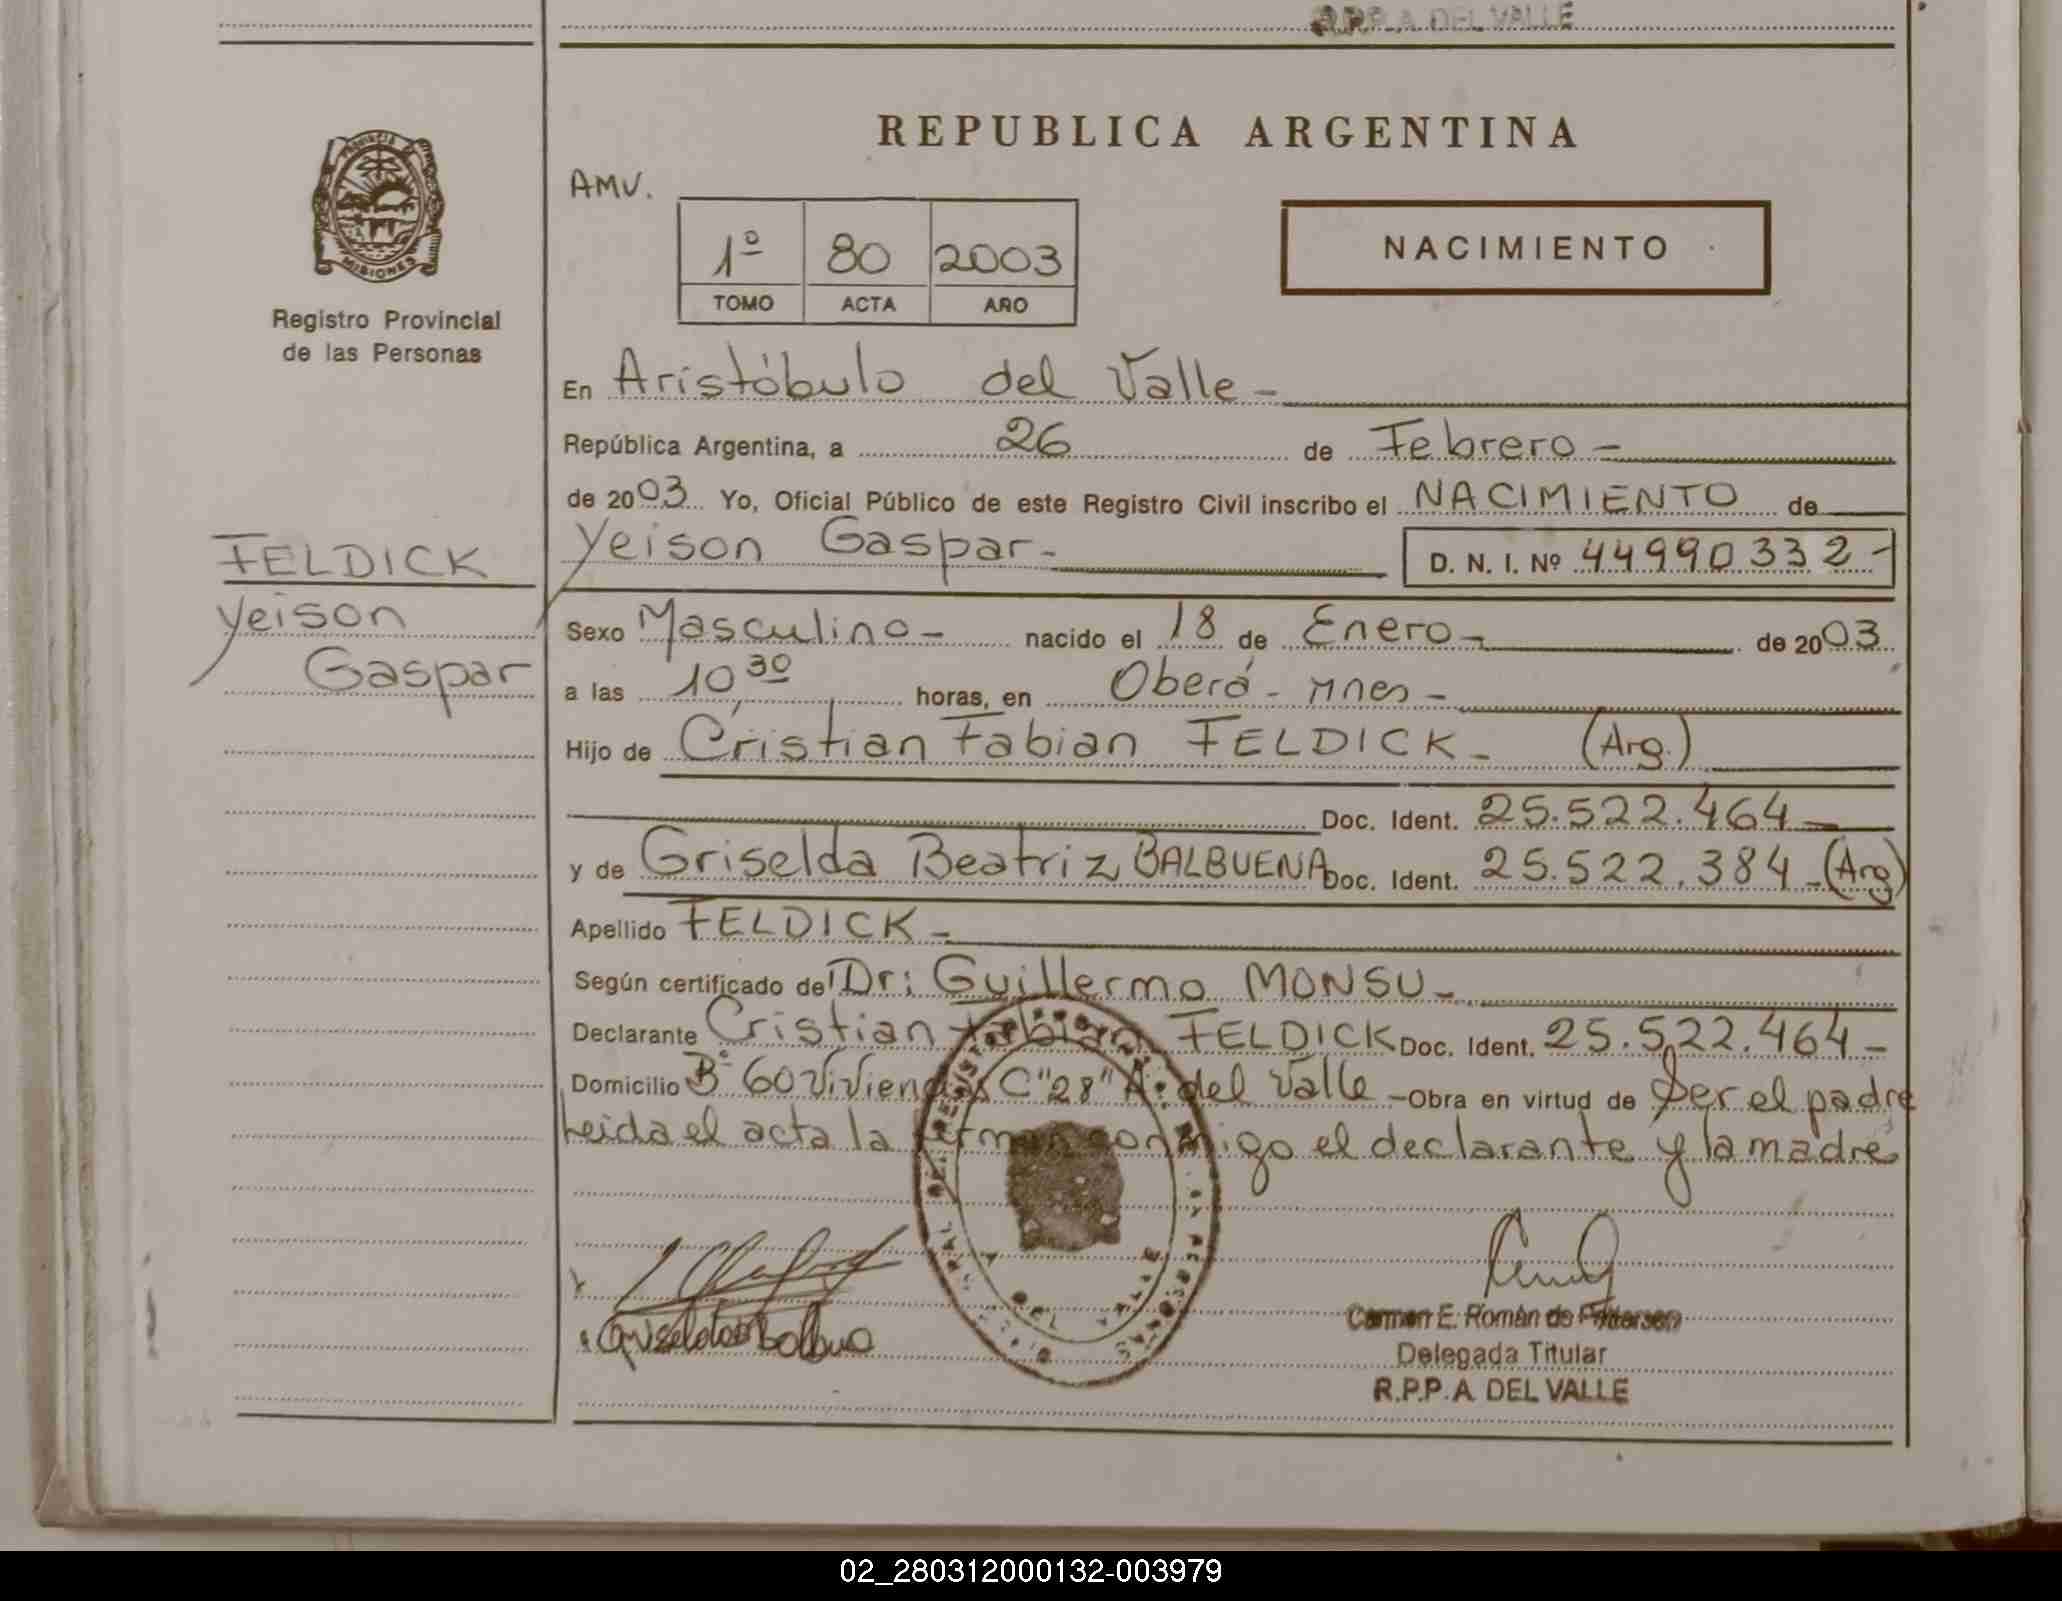 R.P.P.A DEL VALLE
REPUBLICA ARGENTINA
PROVINCIA DE
MISIONES
Registro Provincial
de las Personas
AMV.
1º 80 2003
TOMO ACTA AÑO
NACIMIENTO
En Aristóbulo del Valle -
República Argentina, a 26 de Febrero -
de 2003 Yo, Oficial Público de este Registro Civil inscribo el NACIMIENTO de
Yeison Gaspar - D. N. I. Nº 44990332 -
FELDICK
Yeison
Gaspar
Sexo Masculino - nacido el 18 de Enero - de 2003
a las 10 30 horas, en Oberá - Mnes -
Hijo de Cristian Fabian FELDICK - (Arg.)
Doc. Ident. 25.522.464 -
y de Griselda Beatriz BALBUENA Doc. Ident. 25.522.384 - (Arg)
Apellido FELDICK -
Según certificado de Dr: Guillermo MONSU -
Declarante Cristian Fabian FELDICK Doc. Ident. 25.522.464 -
Domicilio Bº 60 Viviendas C "28" A: del Valle - Obra en virtud de Ser el padre
Leida el acta la firman conmigo el declarante y la madre
Carmen E. Román de Pedersen
Delegada Titular
R.P.P.A. DEL VALLE
02_280312000132-003979